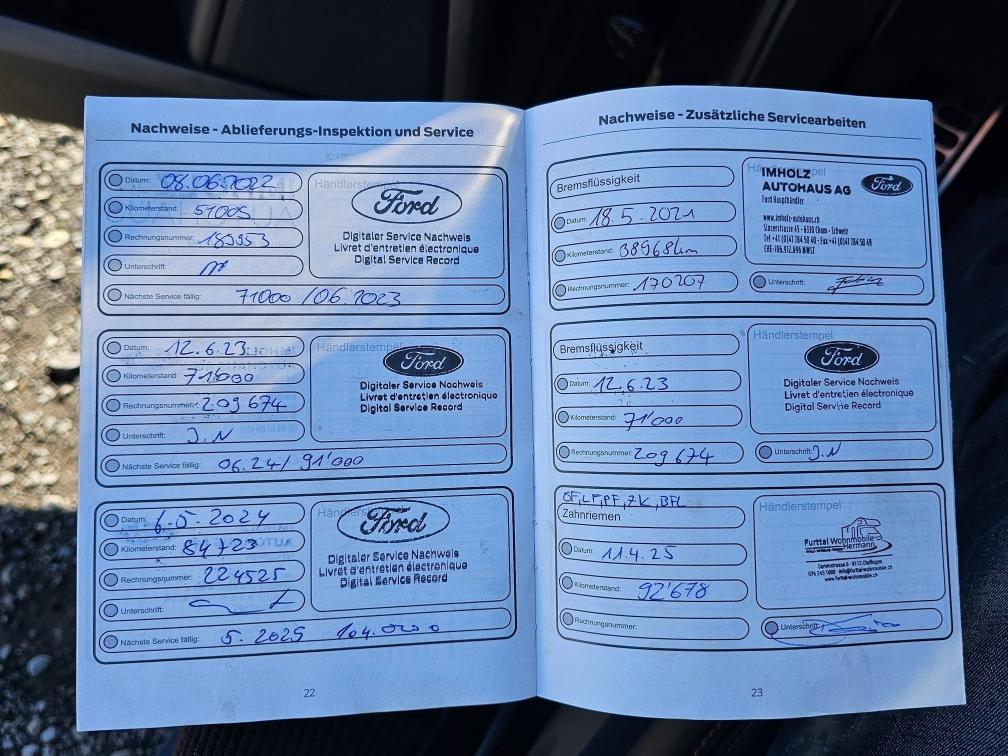 Nachweise - Ablieferungs-Inspektion und Service
Datum: 08.06.2022
Kilometerstand: 51005
Rechnungsnummer: 189953
Unterschrift:
Nächste Service fällig: 71000 / 06.2023
Händlerstempel
Ford
Digitaler Service Nachweis
Livret d'entretien électronique
Digital Service Record
Datum: 12.6.23
Kilometerstand: 71'000
Rechnungsnummer: 209674
Unterschrift: J.N
Nächste Service fällig: 06.24/ 91'000
Händlerstempel
Ford
Digitaler Service Nachweis
Livret d'entretien électronique
Digital Service Record
Datum: 6.5.2024
Kilometerstand: 84723
Rechnungsnummer: 224525
Unterschrift:
Nächste Service fällig: 5.2025 104.000
Händlerstempel
Ford
Digitaler Service Nachweis
Livret d'entretien électronique
Digital Service Record
22
Nachweise - Zusätzliche Servicearbeiten
Bremsflüssigkeit
Datum: 18.5.2021
Kilometerstand: 38968km
Rechnungsnummer: 170207
IMHOLZ
AUTOHAUS AG
Ford Haupthändler
Ford
www.imholz-autohaus.ch
Sinserstrasse 45 - 6330 Cham - Schweiz
Tel +41 (0)41 784 50 40 - Fax +41 (0)41 784 50 49
CHE-106.912.696 MWST
Unterschrift:
Bremsflüssigkeit
Datum: 12.6.23
Kilometerstand: 71'000
Rechnungsnummer: 209674
Händlerstempel
Ford
Digitaler Service Nachweis
Livret d'entretien électronique
Digital Service Record
Unterschrift: J.N
ÖF, LF, PF, ZK, BFL
Zahnriemen
Datum: 11.4.25
Kilometerstand: 92'678
Rechnungsnummer:
Händlerstempel
Furttal Wohnmobile
Hermann
8112 Otelfingen
www.furttal-wohnmobile.ch
Unterschrift:
23